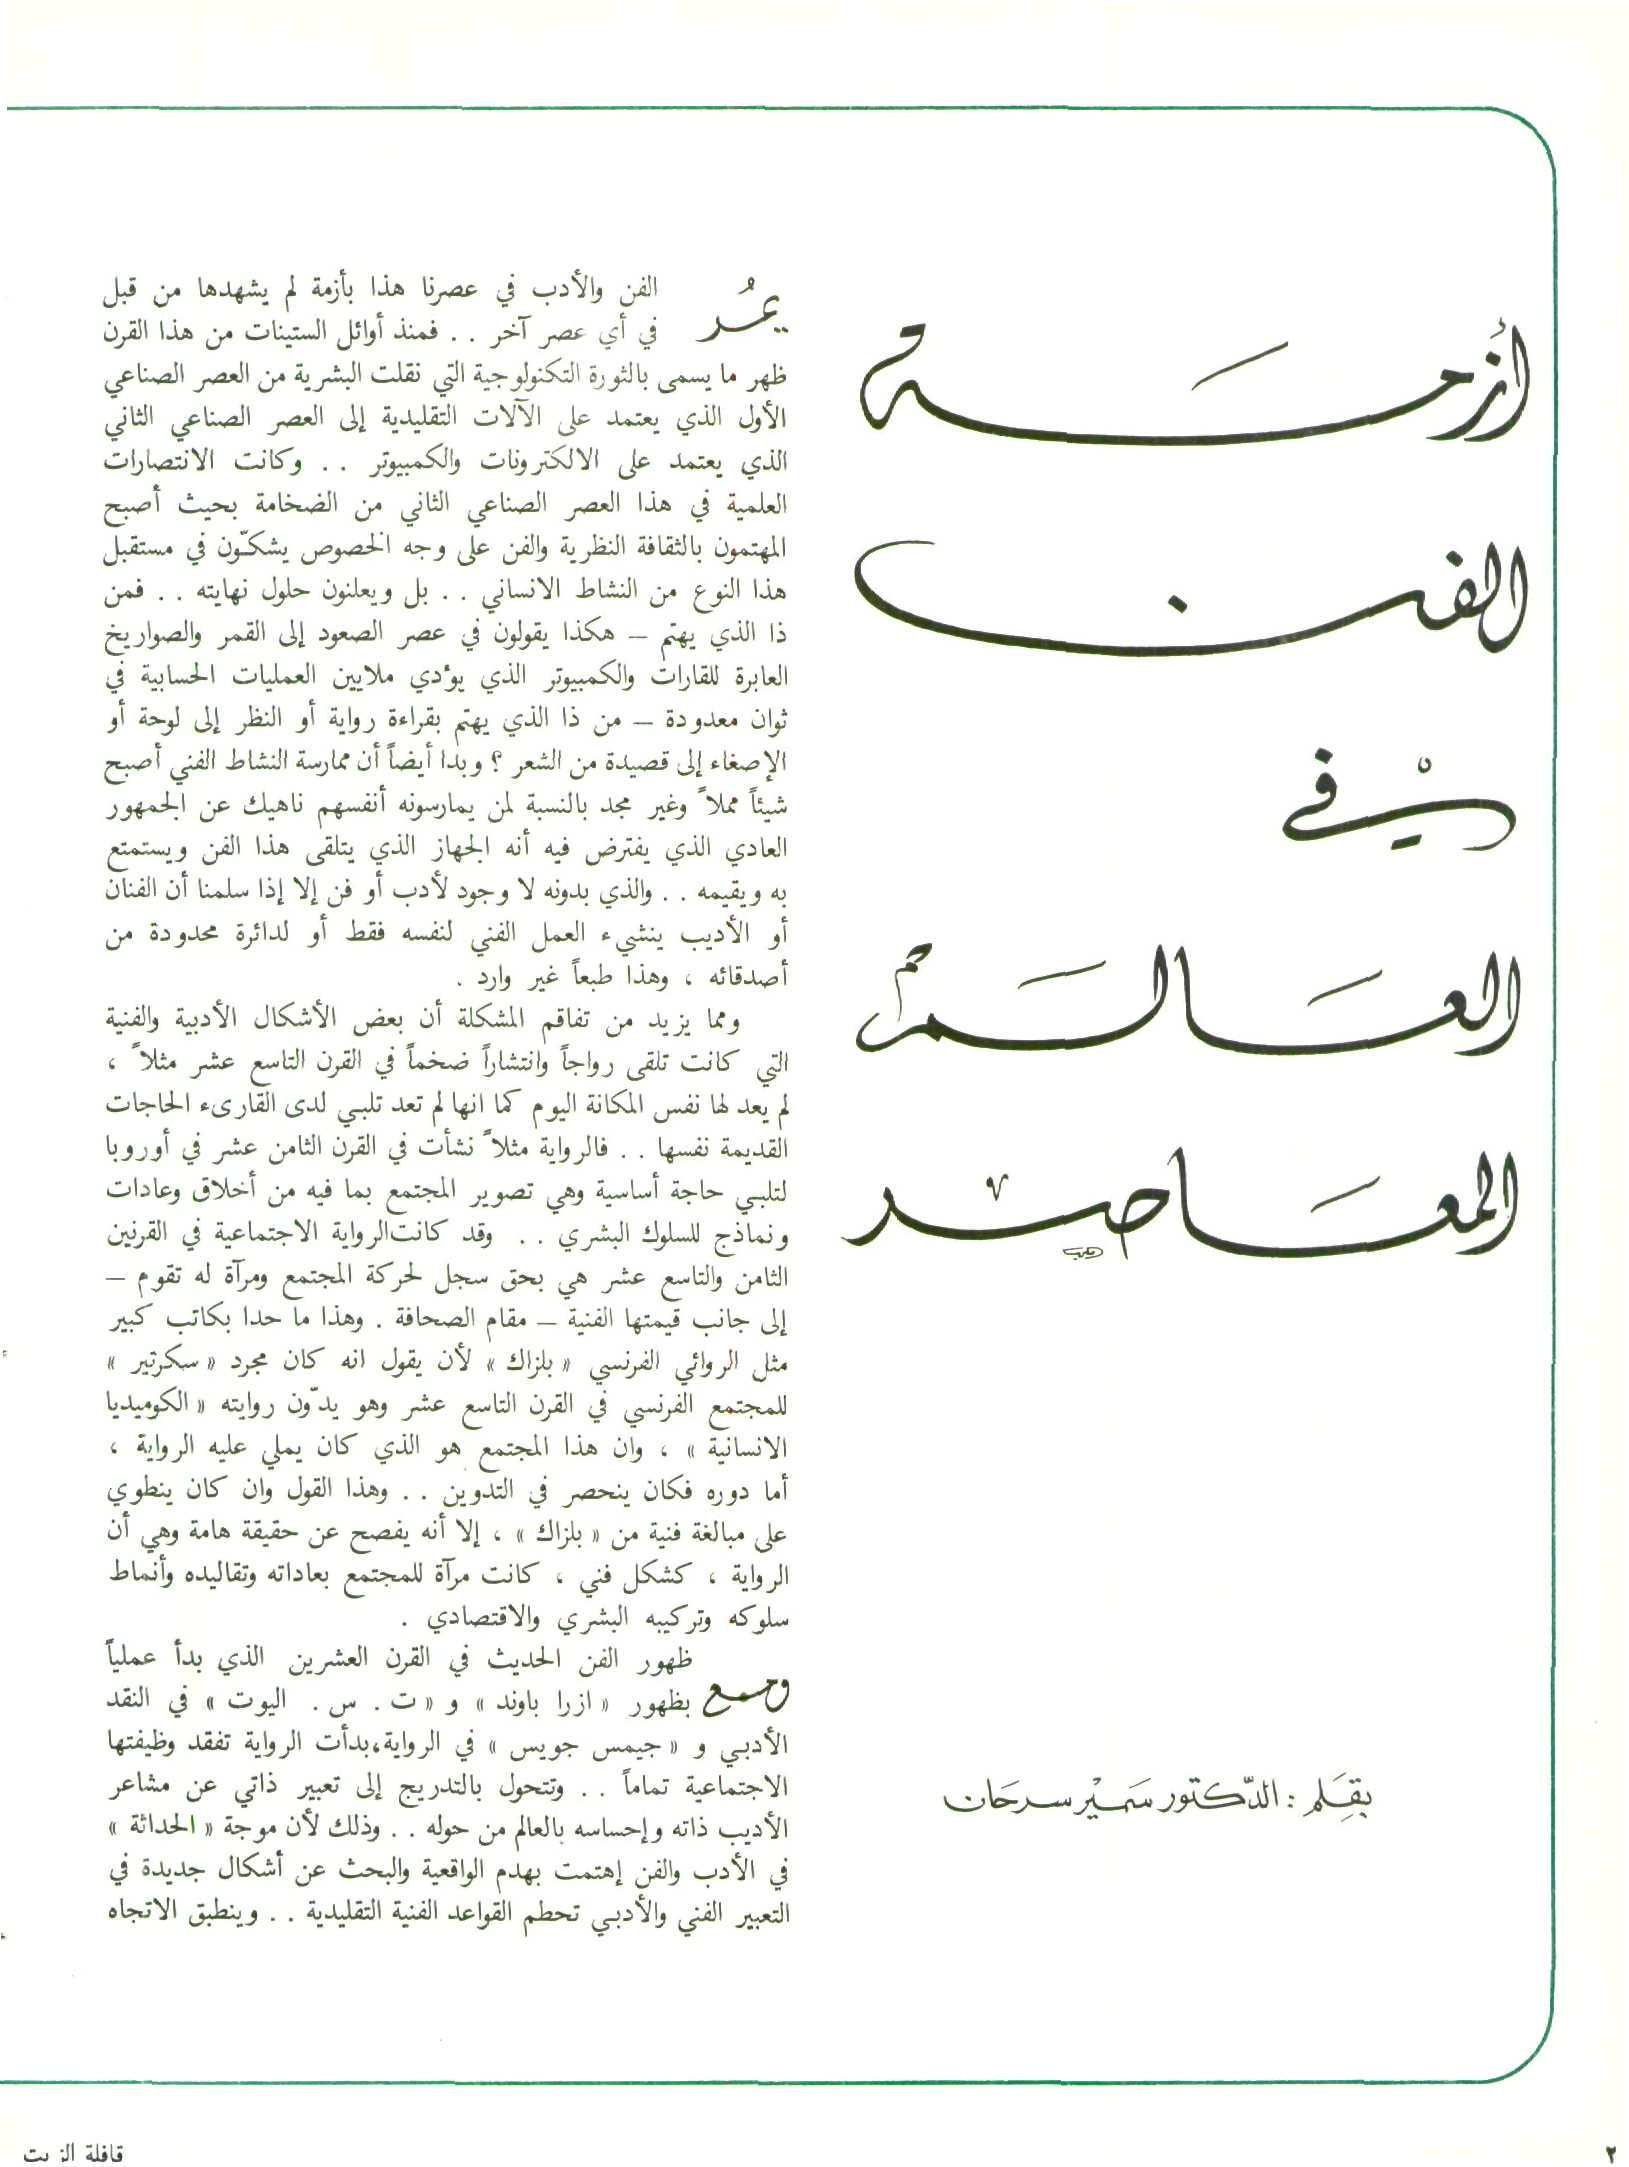 أزمة
الفن
في
العالم
المعاصر
بقلم : الدكتور سمير سرحان
يمر الفن والأدب في عصرنا هذا بأزمة لم يشهدها من قبل
في أي عصر آخر . . فمنذ أوائل الستينات من هذا القرن
ظهر ما يسمى بالثورة التكنولوجية التي نقلت البشرية من العصر الصناعي
الأول الذي يعتمد على الآلات التقليدية إلى العصر الصناعي الثاني
الذي يعتمد على الالكترونات والكمبيوتر . . وكانت الانتصارات
العلمية في هذا العصر الصناعي الثاني من الضخامة بحيث أصبح
المهتمون بالثقافة النظرية والفن على وجه الخصوص يشكّون في مستقبل
هذا النوع من النشاط الانساني . . بل ويعلنون حلول نهايته . . فمن
ذا الذي يهتم – هكذا يقولون في عصر الصعود إلى القمر والصواريخ
العابرة للقارات والكمبيوتر الذي يؤدي ملايين العمليات الحسابية في
ثوان معدودة – من ذا الذي يهتم بقراءة رواية أو النظر إلى لوحة أو
الإصغاء إلى قصيدة من الشعر ؟ وبدا أيضاً أن ممارسة النشاط الفني أصبح
شيئاً مملاً وغير مجد بالنسبة لمن يمارسونه أنفسهم ناهيك عن الجمهور
العادي الذي يفترض فيه أنه الجهاز الذي يتلقى هذا الفن ويستمتع
به ويقيمه . . والذي بدونه لا وجود لأدب أو فن إلا إذا سلمنا أن الفنان
أو الأديب ينشيء العمل الفني لنفسه فقط أو لدائرة محدودة من
أصدقائه ، وهذا طبعاً غير وارد .
ومما يزيد من تفاقم المشكلة أن بعض الأشكال الأدبية والفنية
التي كانت تلقى رواجاً وانتشاراً ضخماً في القرن التاسع عشر مثلاً ،
لم يعد لها نفس المكانة اليوم كما انها لم تعد تلبي لدى القارىء الحاجات
القديمة نفسها . . فالرواية مثلاً نشأت في القرن الثامن عشر في أوروبا
لتلبي حاجة أساسية وهي تصوير المجتمع بما فيه من أخلاق وعادات
ونماذج للسلوك البشري . . وقد كانت الرواية الاجتماعية في القرنين
الثامن والتاسع عشر هي بحق سجل لحركة المجتمع ومرآة له تقوم –
إلى جانب قيمتها الفنية – مقام الصحافة . وهذا ما حدا بكاتب كبير
مثل الروائي الفرنسي « بلزاك » لأن يقول انه كان مجرد « سكرتير »
للمجتمع الفرنسي في القرن التاسع عشر وهو يدّون روايته « الكوميديا
الانسانية » ، وان هذا المجتمع هو الذي كان يملي عليه الرواية ،
أما دوره فكان ينحصر في التدوين . . وهذا القول وان كان ينطوي
على مبالغة فنية من « بلزاك » ، إلا أنه يفصح عن حقيقة هامة وهي أن
الرواية ، كشكل فني ، كانت مرآة للمجتمع بعاداته وتقاليده وأنماط
سلوكه وتركيبه البشري والاقتصادي .
ومع ظهور الفن الحديث في القرن العشرين الذي بدأ عملياً
بظهور « ازرا باوند » و « ت . س . اليوت » في النقد
الأدبي و « جيمس جويس » في الرواية، بدأت الرواية تفقد وظيفتها
الاجتماعية تماماً . . وتتحول بالتدريج إلى تعبير ذاتي عن مشاعر
الأديب ذاته وإحساسه بالعالم من حوله . . وذلك لأن موجة « الحداثة »
في الأدب والفن إهتمت بهدم الواقعية والبحث عن أشكال جديدة في
التعبير الفني والأدبي تحطم القواعد الفنية التقليدية . . وينطبق الاتجاه
٢
قافلة الزيت